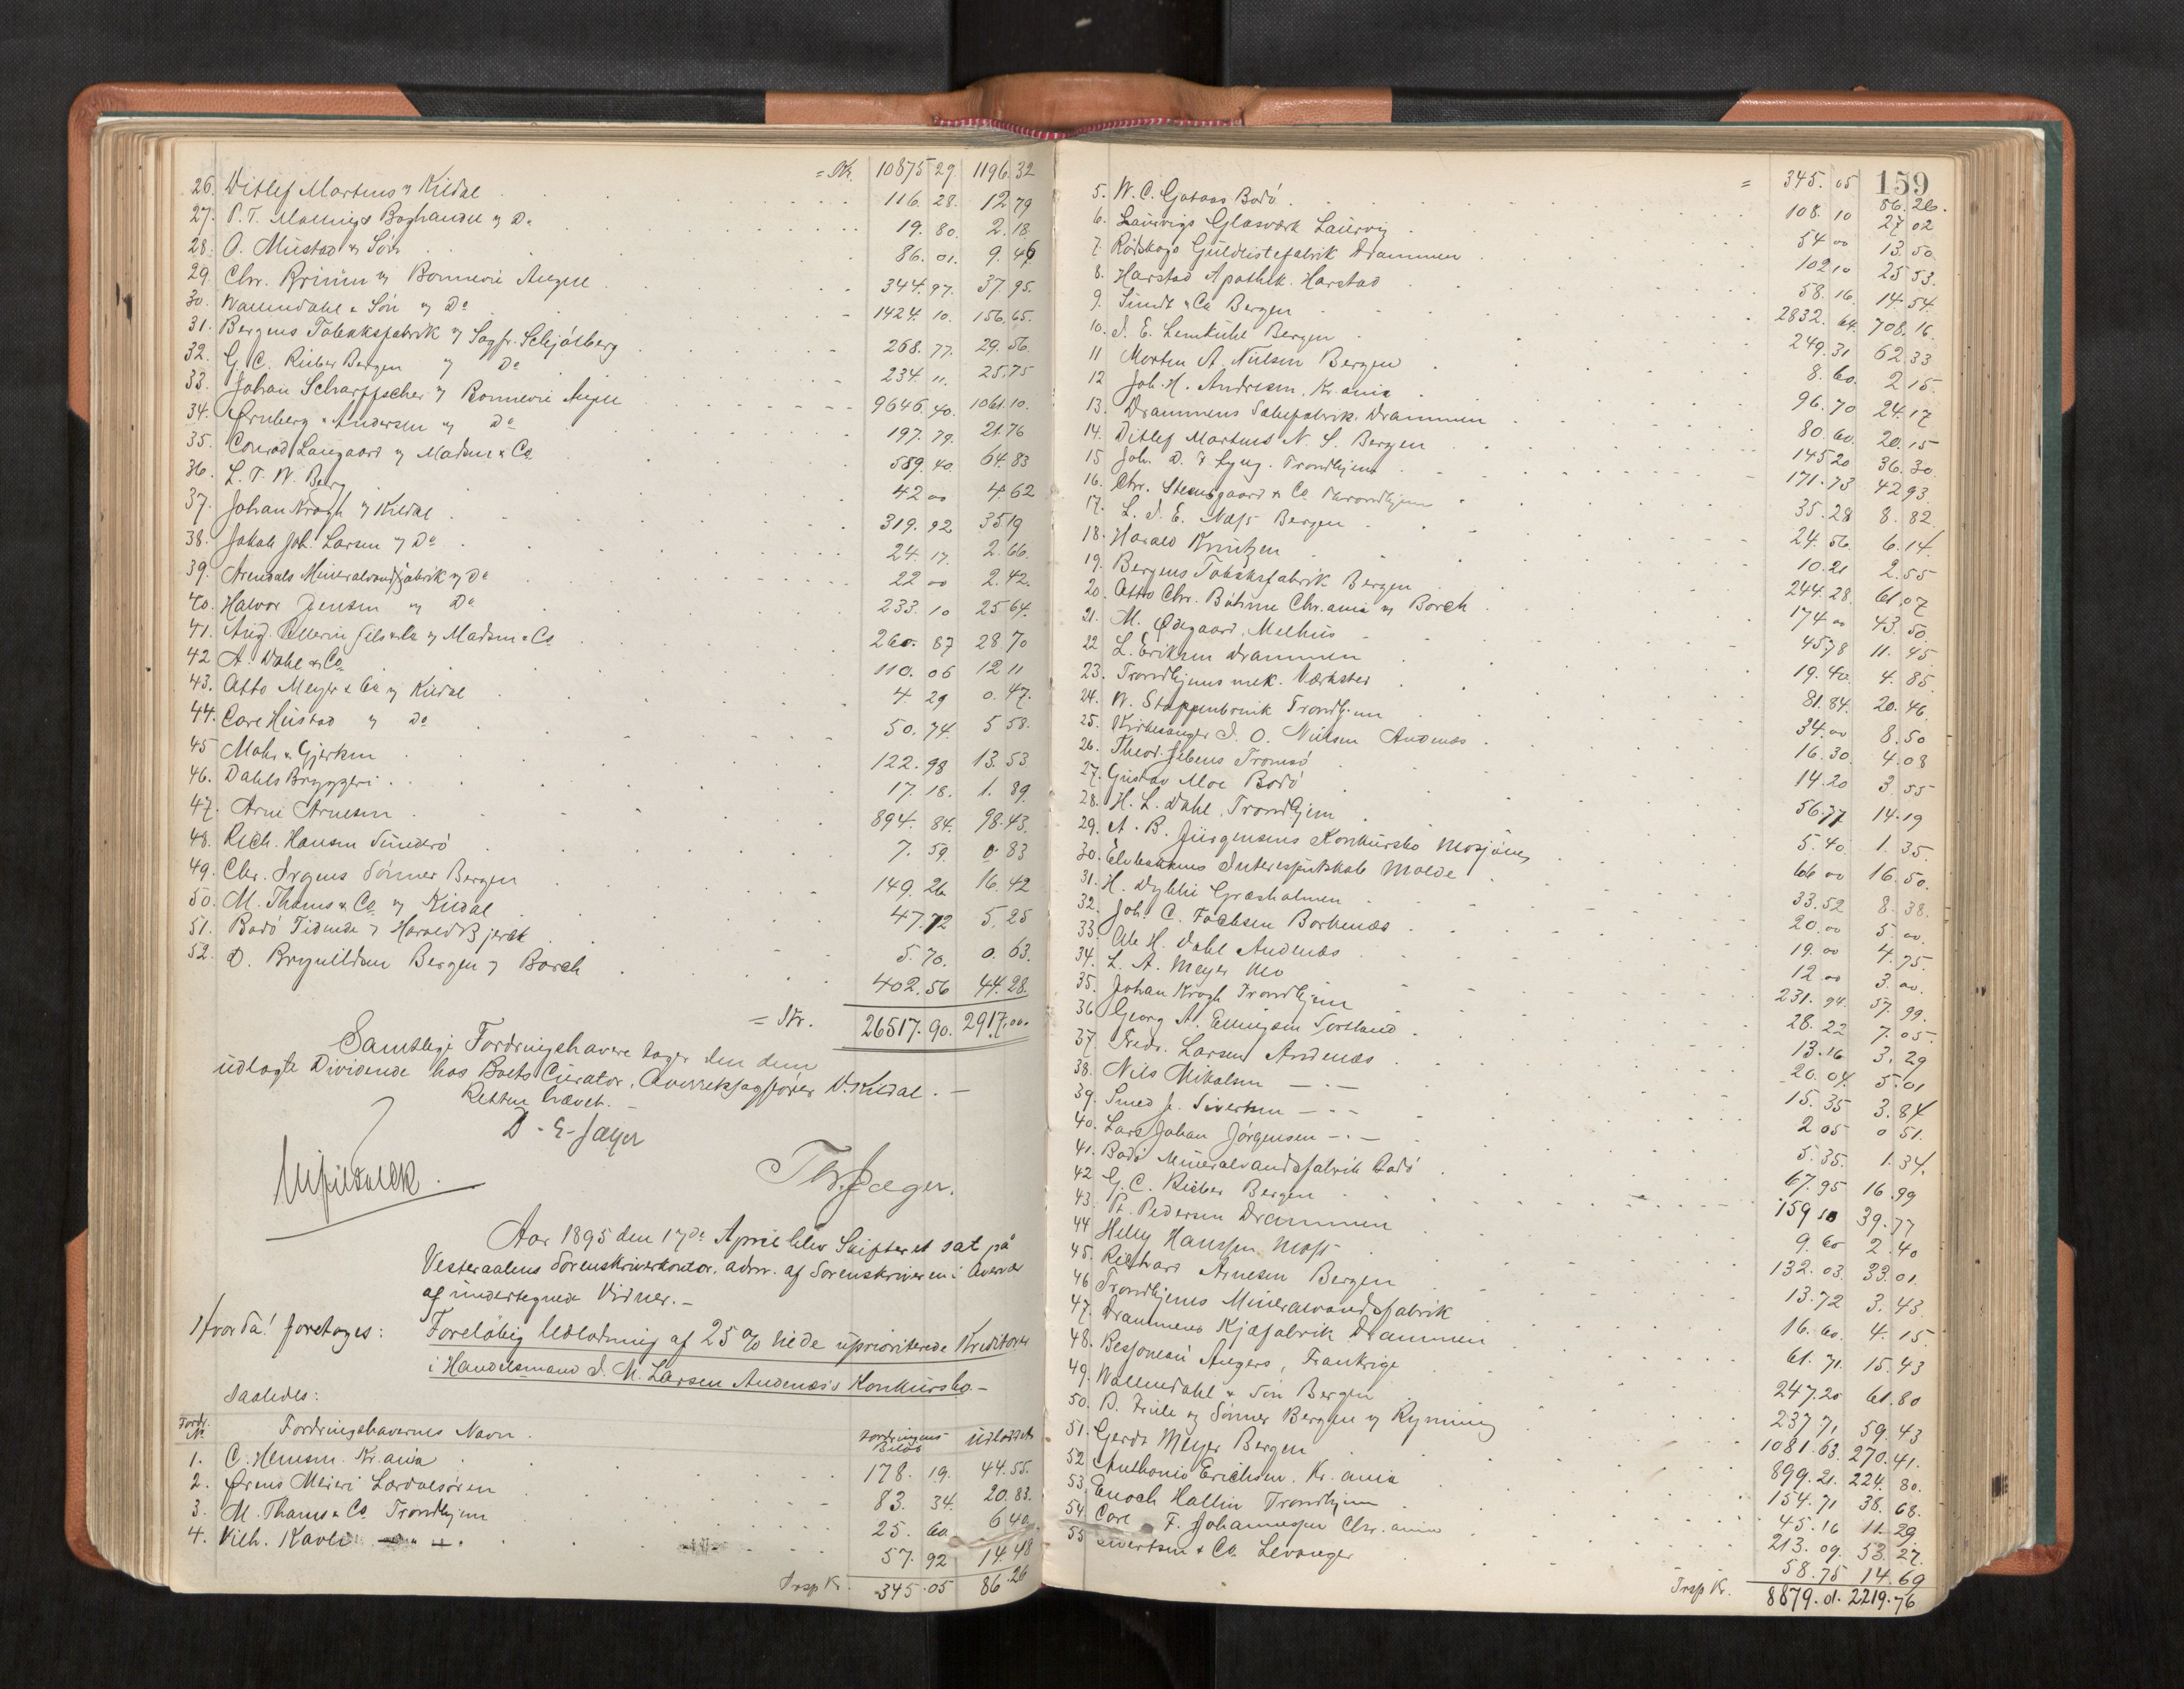 = Kr. 10875 29. 1196. 32
26. Ditlef Martens v Kildal 116. 28. 12 79
27. P. T. Mallings Boghandel v Do 19. 80. 2. 18
28. O. Mustad & Søn 86. 01. 9. 46
29. Chr. Brinn v Bonnevie Angell 344. 97. 37. 95.
30. Wallendahl & Søn v Do 1424. 10. 156. 65.
31. Bergens Tobaksfabrik v Sagfr. Schjølberg 268. 77. 29. 56.
32. G. C. Rieber Bergen v Do 234. 11. 25.75
33. Johan Scharffscher v Bonnevie Angell 9646. 40. 1061. 10.
34. Ørnberg & Andersen v Do 197. 79. 21.76
35. Conrad Langaard v Madsen & Co 589. 40. 64. 83
36. L. T. W. Berg 42 00 4. 62
37. Johan Krogh v Kildal 319. 92 35 19
38. Jakob Joh. Larsen v Do 24. 17. 2. 66.
39. Arendals Mineralvandfabrik v Do 22 00 2. 42.
40. Halvor Jensen v Do 233. 10 25 64.
41. Aug. Pellerin fils & Co v Madsen & Co 260. 87 28 70
42 A. Dahl & Co 110. 06 12 11
43. Otto Meyer & Co v Kildal 4. 29 0. 47.
44. Carl Hustad v Do 50. 74. 5 58.
45 Mohr & Gjerken 122. 98 13. 53
46. Dahls Bryggeri 17. 18. 1. 89
47. Arne Arnesen 894. 84. 98. 43.
48. Rich. Hansen Sunderø 7. 59. 0. 83
49. Chr. Irgens Sønner Bergen 149. 26 16. 42
50. M. Thams & Co v Kildal 47. 72 5. 25
51. Bodø Tidende v Harald Bjerck 5. 70. 0. 63.
52. D. Brynildsen Bergen v Borch 402. 56 44. 28.
= Kr. 26517. 90. 2917. 00.
Samtlige Fordringshavere tager den dem
udlagte Dividende hos Boets Curator, Overretssagfører V. Kildal. —
Retten hævet. —
D. E. Jæger
Th. Jæger.
Aar 1895 den 17de April blev Skifteret sat på
Vesteraalens Sorenskriverkontor, adm. af Sorenskriveren i Overvær
af undertegnede Vidner. —
Hvorda! foretoges: Foreløbig Udlodning af 25 % til de uprioriterede Kreditorer
i Handelsmand J. M. Larsen Andenæs's Konkursbo. —
Saaledes:
Fordr. No Fordringshavernes Navn. Fordringens Beløb Udlodet
1. C. Hemsen. Kr.ania 178. 19. 44. 55.
2. Ørens Meieri Lærdalsøren 83. 34. 20. 83.
3. M. Thams & Co Trondhjem 25. 60 6 40
4. Vilh. Kavli 57. 92 14. 48
Trsp Kr. 345. 05 86. 26
159
= 345. 05 86. 26.
5. W. C. Gotaas Bodø 108. 10 27 02
6. Laurvigs Glasværk Laurvig 54 00 13. 50
7. Rødskogs Guldlistefabrik Drammen 102 10 25 53.
8. Harstad Apothek. Harstad 58. 16. 14. 54.
9. Sundt & Co Bergen 2832. 64. 708. 16.
10. J. E. Lemkuhl Bergen 249. 31 62. 33
11 Morten A. Nielsen Bergen 8. 60. 2 15.
12 Joh. H. Andresen, Kr.ania 96. 70 24. 17
13. Drammens Sæbefabrik. Drammen 80. 60. 20. 15
14. Ditlef Martens N. S. Bergen 145 20 36. 30
15 Joh. D. F. Lyng. Trondhjem 171. 73 42 93.
16. Chr. Steensgaard & Co Throndhjem 35. 28 8. 82.
17. L. J. E. Næss Bergen 24. 56. 6. 14.
18. Harald Knutzen 10. 21 2. 55
19. Bergens Tobaksfabrik Bergen 244. 28. 61. 07
20. Otto Chr. Bühme Chr.ania v Borch 174 00 43. 50
21. M. Ødegaard, Melhus 45 78 11. 45
22 L. Eriksen Drammen 19. 40. 4. 85.
23. Trondhjems mek. Værksted 81. 84. 20. 46
24. W. Stoppenbrink Trondhjem 34. 00 8. 50
25. Kirkesanger J. O. Nielsen Andenæs 16. 30. 4. 08
26. Theod. Jebens Tromsø 14. 20 3. 55
27. Gustav Moe Bodø 56. 77 14. 19
28. H. L. Dahl, Trondhjem 5. 40 1. 35.
29. A. B. Jürgensens Konkursbo Mosjøen 66 00 16. 50.
30. Elvebakkens Interessentskab Molde 33. 52 8. 38.
31. H. Dybhi Græsholmen 20. 00 5. 00.
32. Joh. C. Jochsen Borkenæs 19. 00 4. 75.
33. Ole H. Dahl Andenæs 12 00 3. 00.
34. L. A. Meyer Mo 231. 94. 57. 99.
35. Johan Krogh Trondhjem 28. 22 7. 05.
36 Georg A. Ellingsen Sortland 13. 16 3. 29
37. Fredr. Larsen Andenæs 20. 04. 5. 01
38. Nils Mikalsen — . — 15. 35 3. 84
39. Smed J. Sivertsen — . — 2 05 0 51.
40. Lars Johan Jørgensen — . — 5. 35. 1. 34.
41. Bodø Mineralvandsfabrik Bodø 67. 95 16. 99
42 G. C. Rieber Bergen 159 10 39. 77
43. Pt. Pedersen Drammen 9. 60 2. 40
44 Helly Hanssen Moss 132. 03. 33. 01.
45. Richard Arnesen Bergen 13. 72 3. 43
46 Trondhjems Mineralvandsfabrik 16. 60. 4. 15
47. Drammens Kjæfabrik Drammen 61. 71. 15. 43
48. Bessoneau Angers, Frankrige 247. 20 61. 80
49. Wallendahl & Søn Bergen 237. 71 59. 43
50. B. Friele og Sønner Bergen v Rynning 1081. 63. 270. 41.
51. Gerdt Meyer Bergen 899. 21. 224. 80.
52. Anthonio Erichsen. Kr.ania 154. 71 38. 68.
53. Enoch Hallin Trondhjem 45. 16 11. 29
54. Carl F. Johannessen Chr.ania 213. 09. 53. 27.
55 Sivertsen & Co. Levanger 58. 75 14. 69
Trsp Kr. 8879. 01. 2219. 76